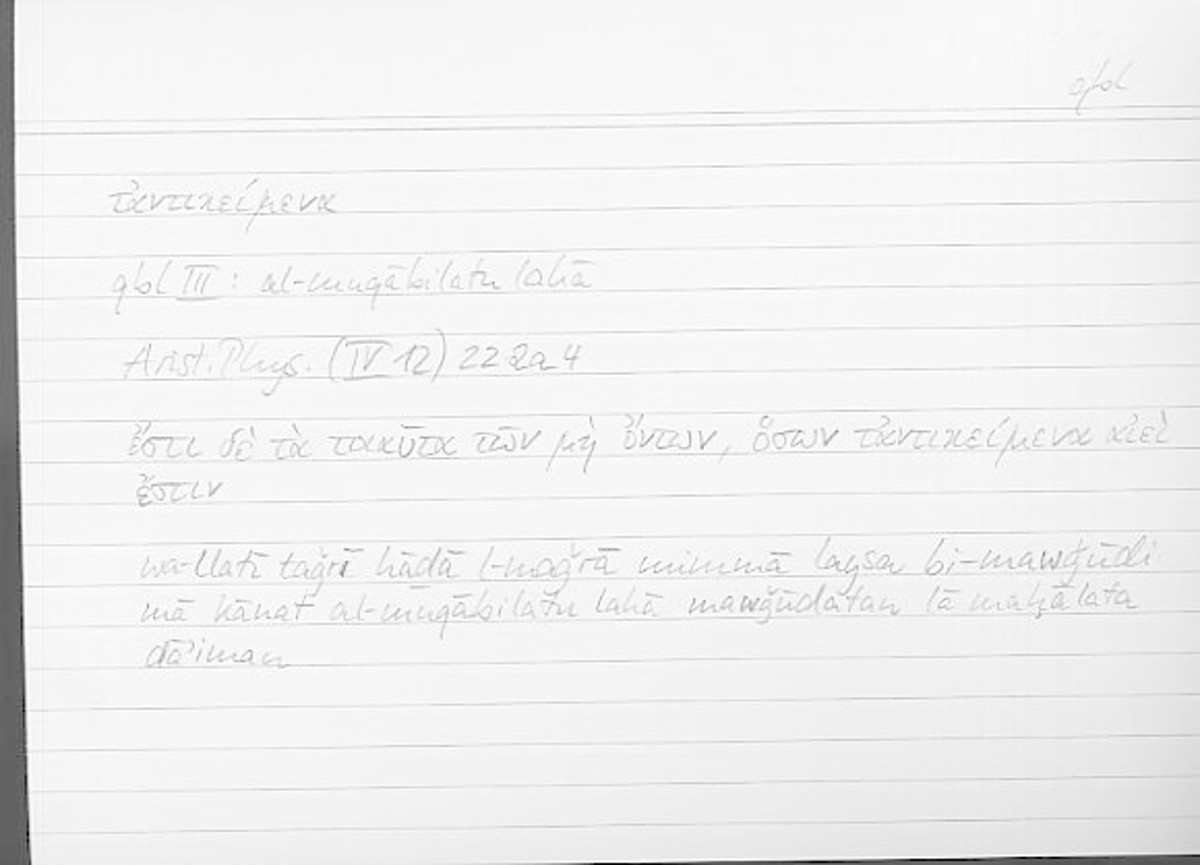 qbl
τἀντικείμενα
qbl III : al-muqābilatu lahā
Arist. Phys. (IV 12) 222a4
ἔστι δὲ τὰ τοιαῦτα τῶν μὴ ὄντων, ὅσων τἀντικείμενα αἰεὶ
ἔστιν
wa-llatī taǧrī hāḏā l-maǧrā mimmā laysa bi-mawǧūdi
mā kānat al-muqābilatu lahā mawǧūdatan lā maḥālata
dāʾiman